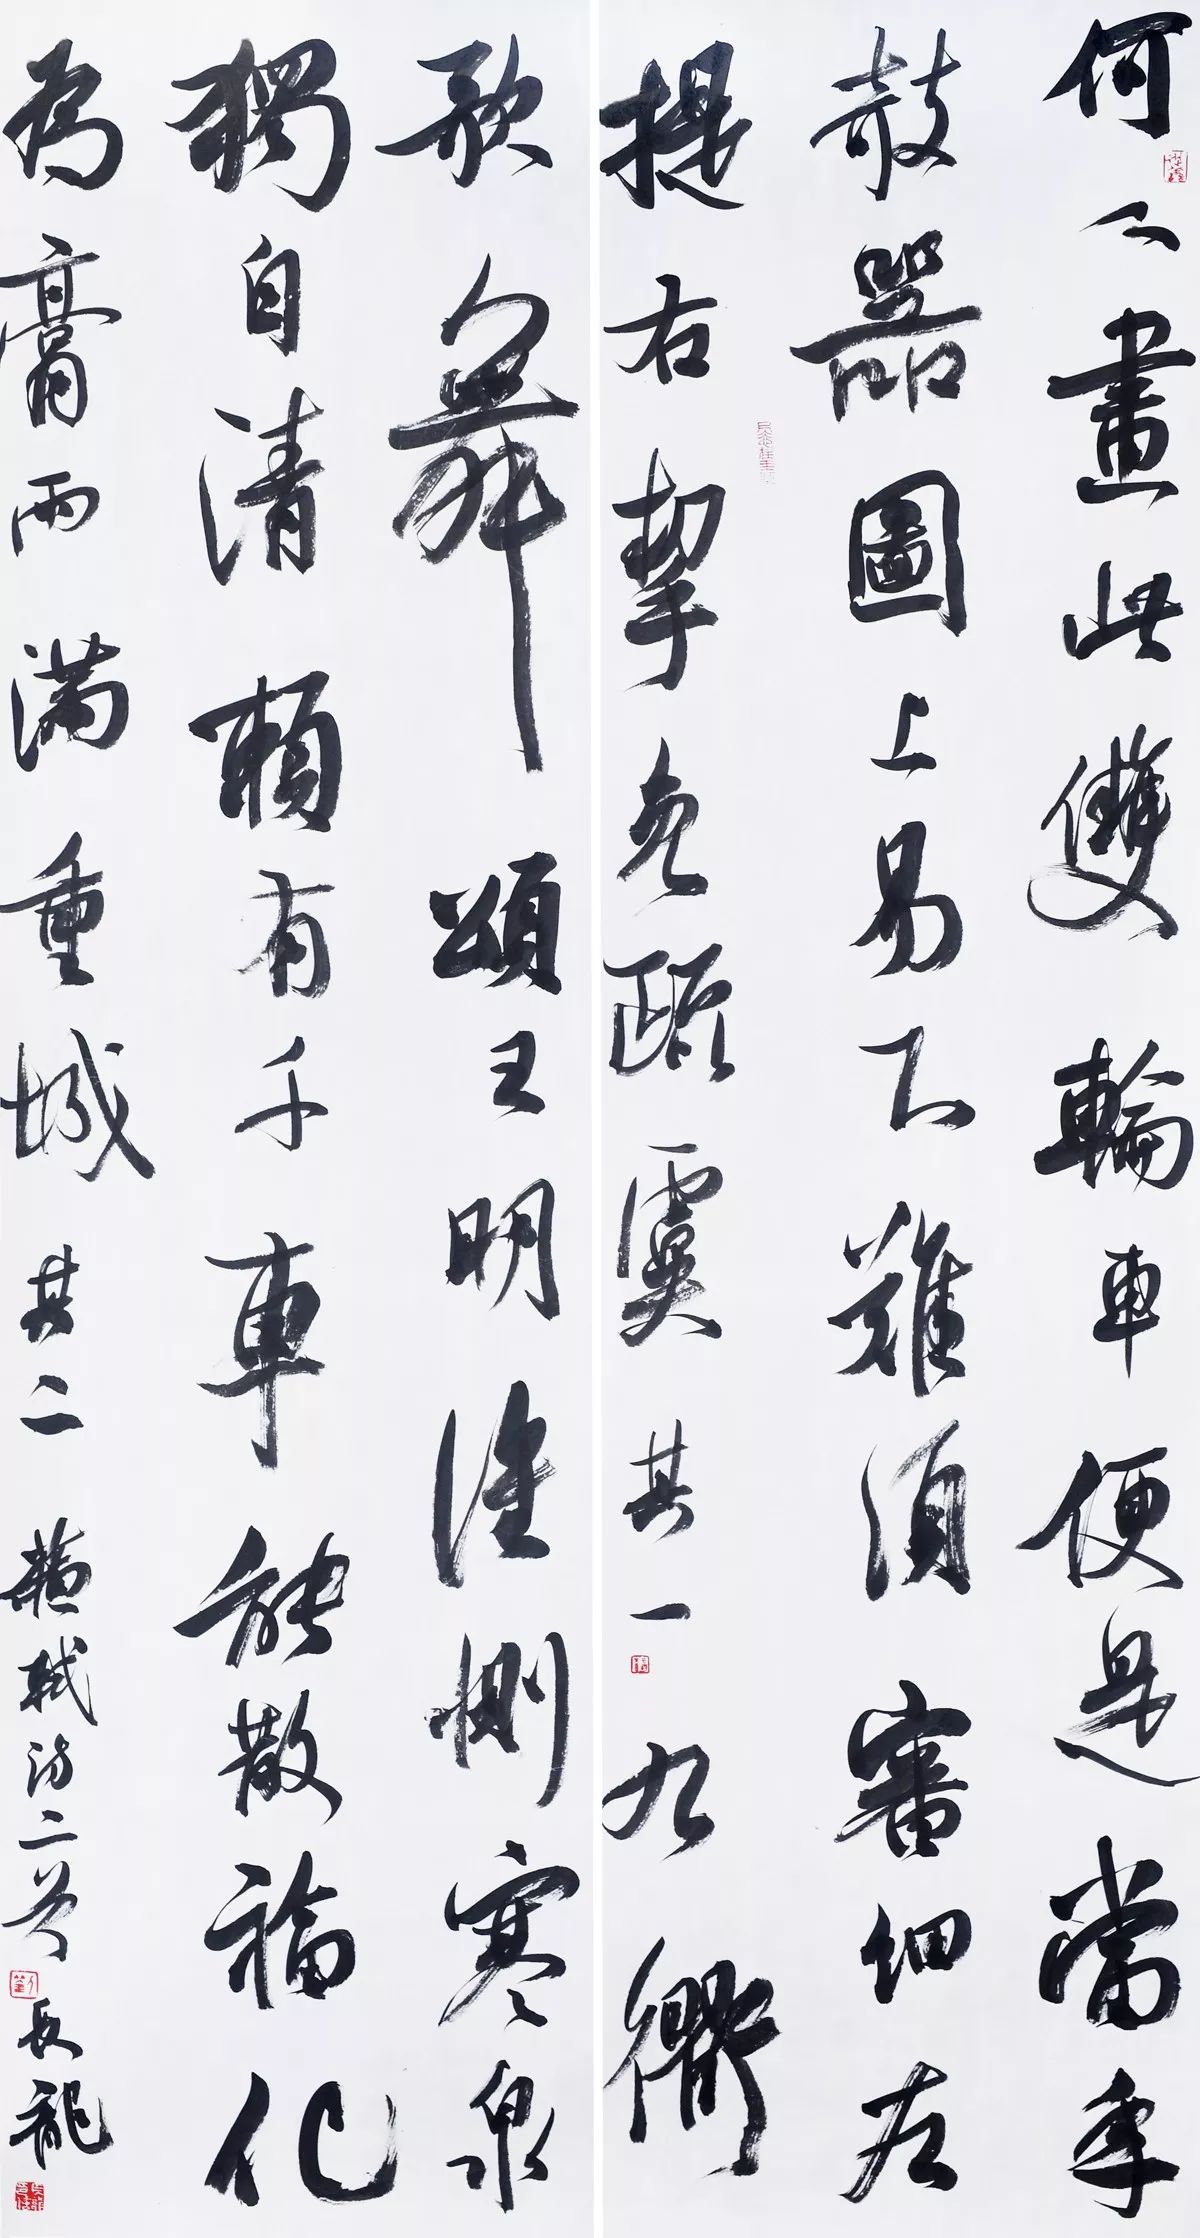 何人畫此雙輪車便是當年
攲器圖上易下難須審細左
提右挈免疏虞 其一 九衢
歌舞頌王明誰惻寒泉
獨自清賴有千車能散福化
為膏雨滿重城 其二 蘇軾詩二首 長龍